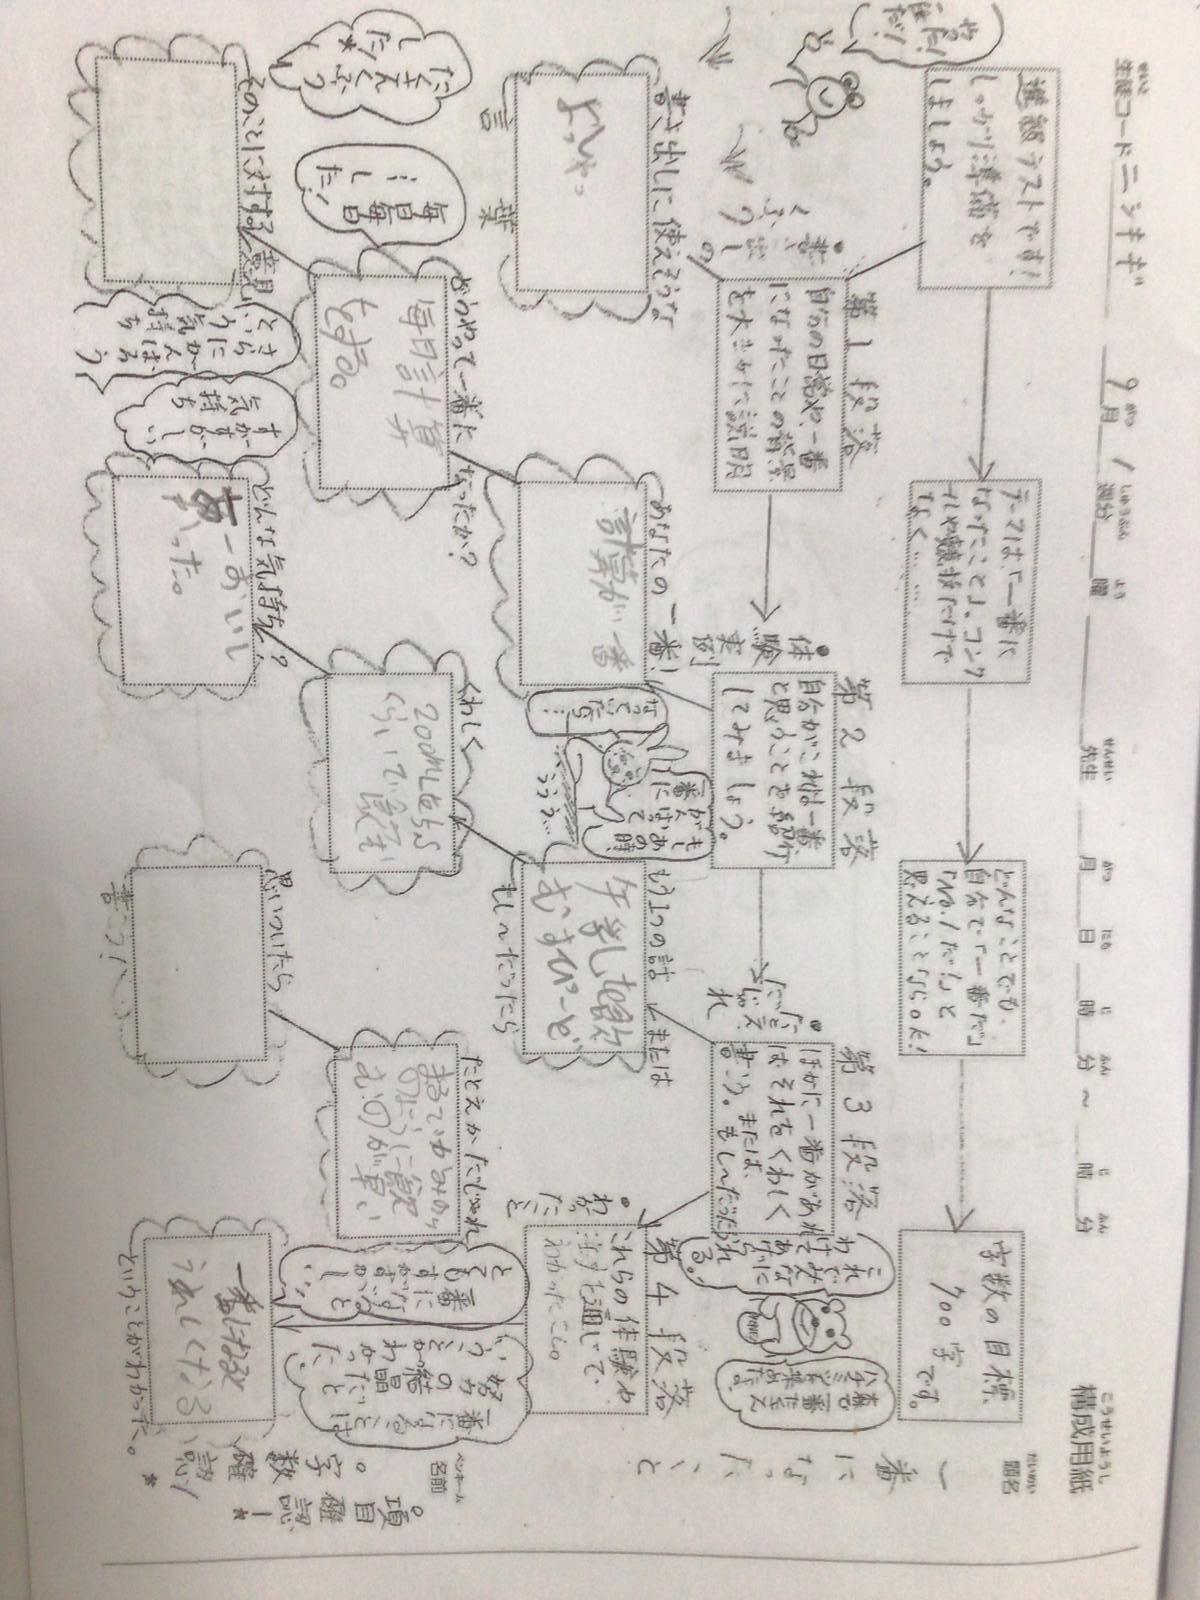 構成用紙
こうせいようし
生徒コード ニシキギ
せいと
9月1週分
曜
先生
月 日 時 分 ~ 時 分
題名
だいめい
一番になったこと
ペンネーム
名前
進級テストです!
しっかり準備を
しましょう。
テーマは「一番に
なったこと」。コンク
ールや競技だけで
なく……
どんなことでも、
自分で「一番だ」
「No.1だ!」と
思えることならOK!
字数の目標
700字です。
第1段落
自分の日常や、一番
になったことの背景
を大まかに説明
第2段落
・体験実例
自分がこれは一番
と思うことを紹介
してみましょう。
第3段落
・たとえ
ほかに一番があれ
ばそれをくわしく
書こう。または、
もし~だったら
第4段落
・わかったこと
これらの体験や
話を通じて、
わかったこと。
書き出しに使えそうな
言葉
よっしゃっ
あなたの一番!
計算が一番
なってから…
もし
一番が
にがんばって
の時
うぅぅ…
もう1つの話 または
もし~だったら
牛乳を飲
むすぴーど
これで
みんなに
わけて
あげ
られる。
森で一番たくさん
ハチミツを集めたよ。
どうやって一番になったか?
毎日計算
をする。
毎日毎日
…し
た!
たくさんくふう
した!
くわしく
200mLを5.5
くらいで飲む
たとえ かだじゃれ
まるでいわみのり
のように飲
むのが早い
一番に
なると
とても
すがすがしい…
一番になることは
努力の結晶だと
いうことがわかった
そのことに対する意見
さらに
がんばろう
という気持ち
すがすがしい
気持ち
どんな気持ち?
あーおいし
かった。
思いついたら
書こう!
一番は
うれしくなる
ということがわかった。
。字数確認!
。項目確認!